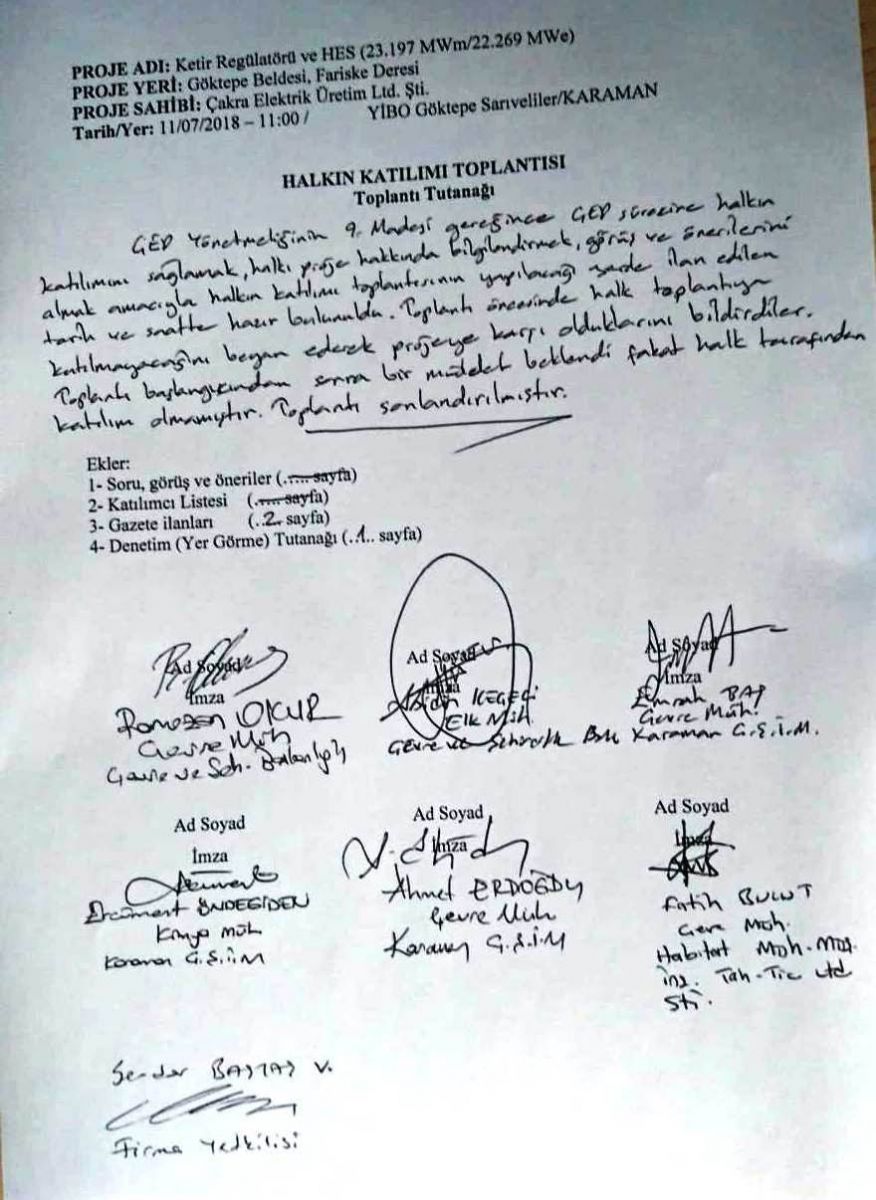 PROJE ADI: Ketir Regülatörü ve HES (23.197 MWm/22.269 MWe)
PROJE YERİ: Göktepe Beldesi, Fariske Deresi
PROJE SAHİBİ: Çakra Elektrik Üretim Ltd. Şti.
Tarih/Yer: 11/07/2018 – 11:00 / YİBO Göktepe Sarıveliler/KARAMAN
HALKIN KATILIMI TOPLANTISI
Toplantı Tutanağı
ÇED Yönetmeliğinin 9. Madesi gereğince ÇED sürecine halkın
katılımını sağlamak, halkı proje hakkında bilgilendirmek, görüş ve önerilerini
almak amacıyla halkın katılımı toplantısının yapılacağı yerde ilan edilen
tarih ve saatte hazır bulunuldu. Toplantı öncesinde halk toplantıya
katılmayacağını beyan ederek projeye karşı olduklarını bildirdiler.
Toplantı başlangıcından sonra bir müddet beklendi fakat halk tarafından
katılım olmamıştır. Toplantı sonlandırılmıştır.
Ekler:
1- Soru, görüş ve öneriler (....... sayfa)
2- Katılımcı Listesi (....... sayfa)
3- Gazete ilanları (.2. sayfa)
4- Denetim (Yer Görme) Tutanağı (.1.. sayfa)
Ad Soyad Ad Soyad Ad Soyad
İmza İmza İmza
Ramazan OKUR
Çevre Müh
Çevre ve Şeh. Bakanlığı
Elk Müh.
Çevre ve Şehircilik Bak
Emrah BAŞ
Çevre Müh.
Karaman Ç.Ş.İ.M.
Ad Soyad Ad Soyad Ad Soyad
İmza İmza İmza
Ercüment ÖNDEGİDEN
Kimya müh
Karaman Ç.Ş.İ.M
Ahmet ERDOĞDU
Çevre Müh
Karaman Ç.Ş.İ.M
Fatih BULUT
Çevre Müh.
Habitat Müh-Müş.
inş. Tah-Tic Ltd
Şti.
Serdar BAŞTAŞ V.
Firma Yetkilisi